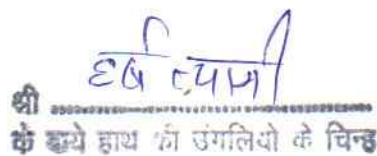 हर्ष त्यागी
श्री
के बाये हाथ की उंगलियो के चिन्ह